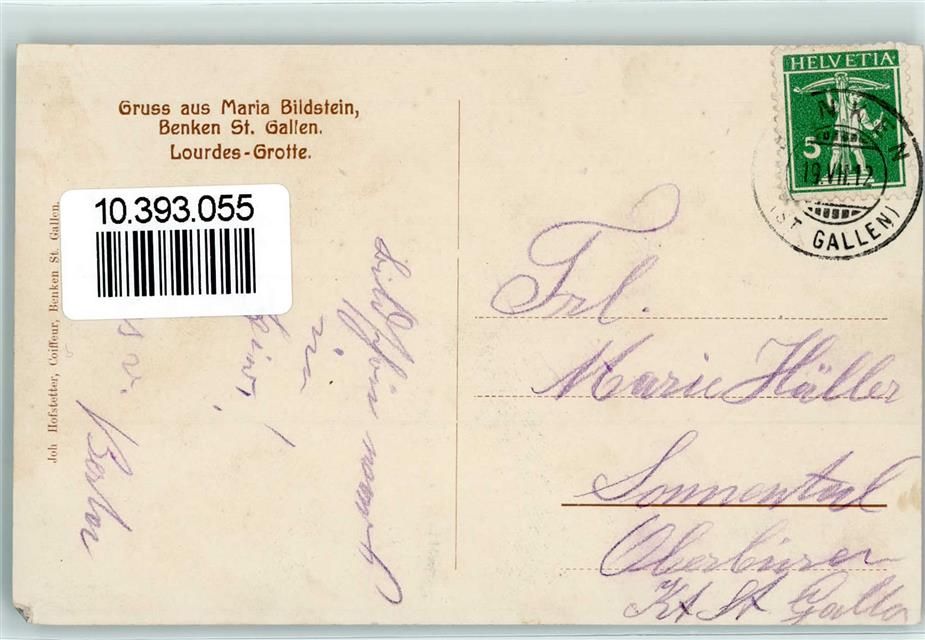 Gruss aus Maria Bildstein,
Benken St. Gallen.
Lourdes-Grotte.
10.393.055
Joh Hofstetter, Coiffeur, Benken St. Gallen.
HELVETIA
5
NKEN
19.VII.12
(ST GALLEN)
Frl.
Marie Häller
Sonnental
Oberbüren
Kt St Galle